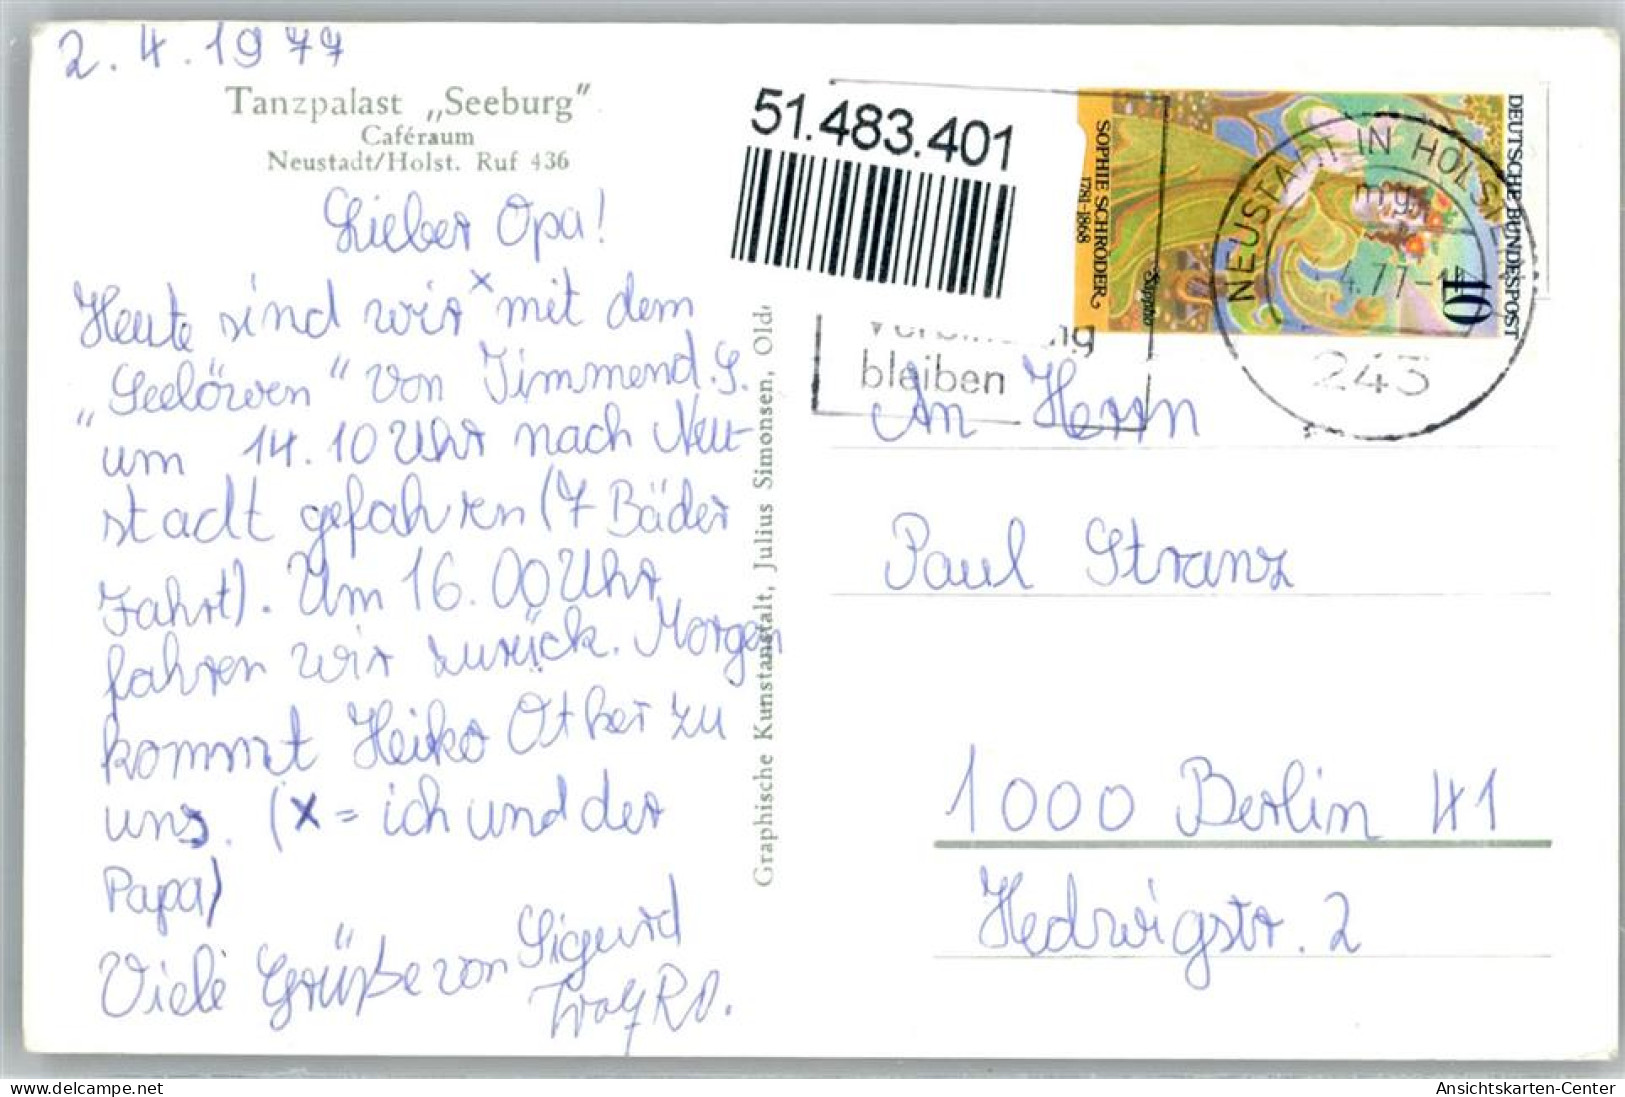 2. 4. 1977
Tanzpalast „Seeburg"
Caféraum
Neustadt/Holst. Ruf 436
Lieber Opa!
Heute sind wir x mit dem
"Seelöwen" von Timmend. S.
um 14.10 Uhr nach Neu-
stadt gefahren (7 Bäder
Fahrt). Um 16.00 Uhr
fahren wir zurück. Morgen
kommt Heiko Otker zu
uns. (x = ich und der
Papa)
Viele Grüße von Sigurd
Graphische Kunstanstalt, Julius Simonsen, Old
51.483.401
bleiben
SOPHIE SCHRÖDER
1781-1868
Sappho
DEUTSCHE BUNDESPOST
40
NEUSTADT IN HOLST
mg
4.77-1
243
An Herrn
Paul Stranz
1000 Berlin 41
Hedwigstr. 2
Ansichtskarten-Center
delcampe.net